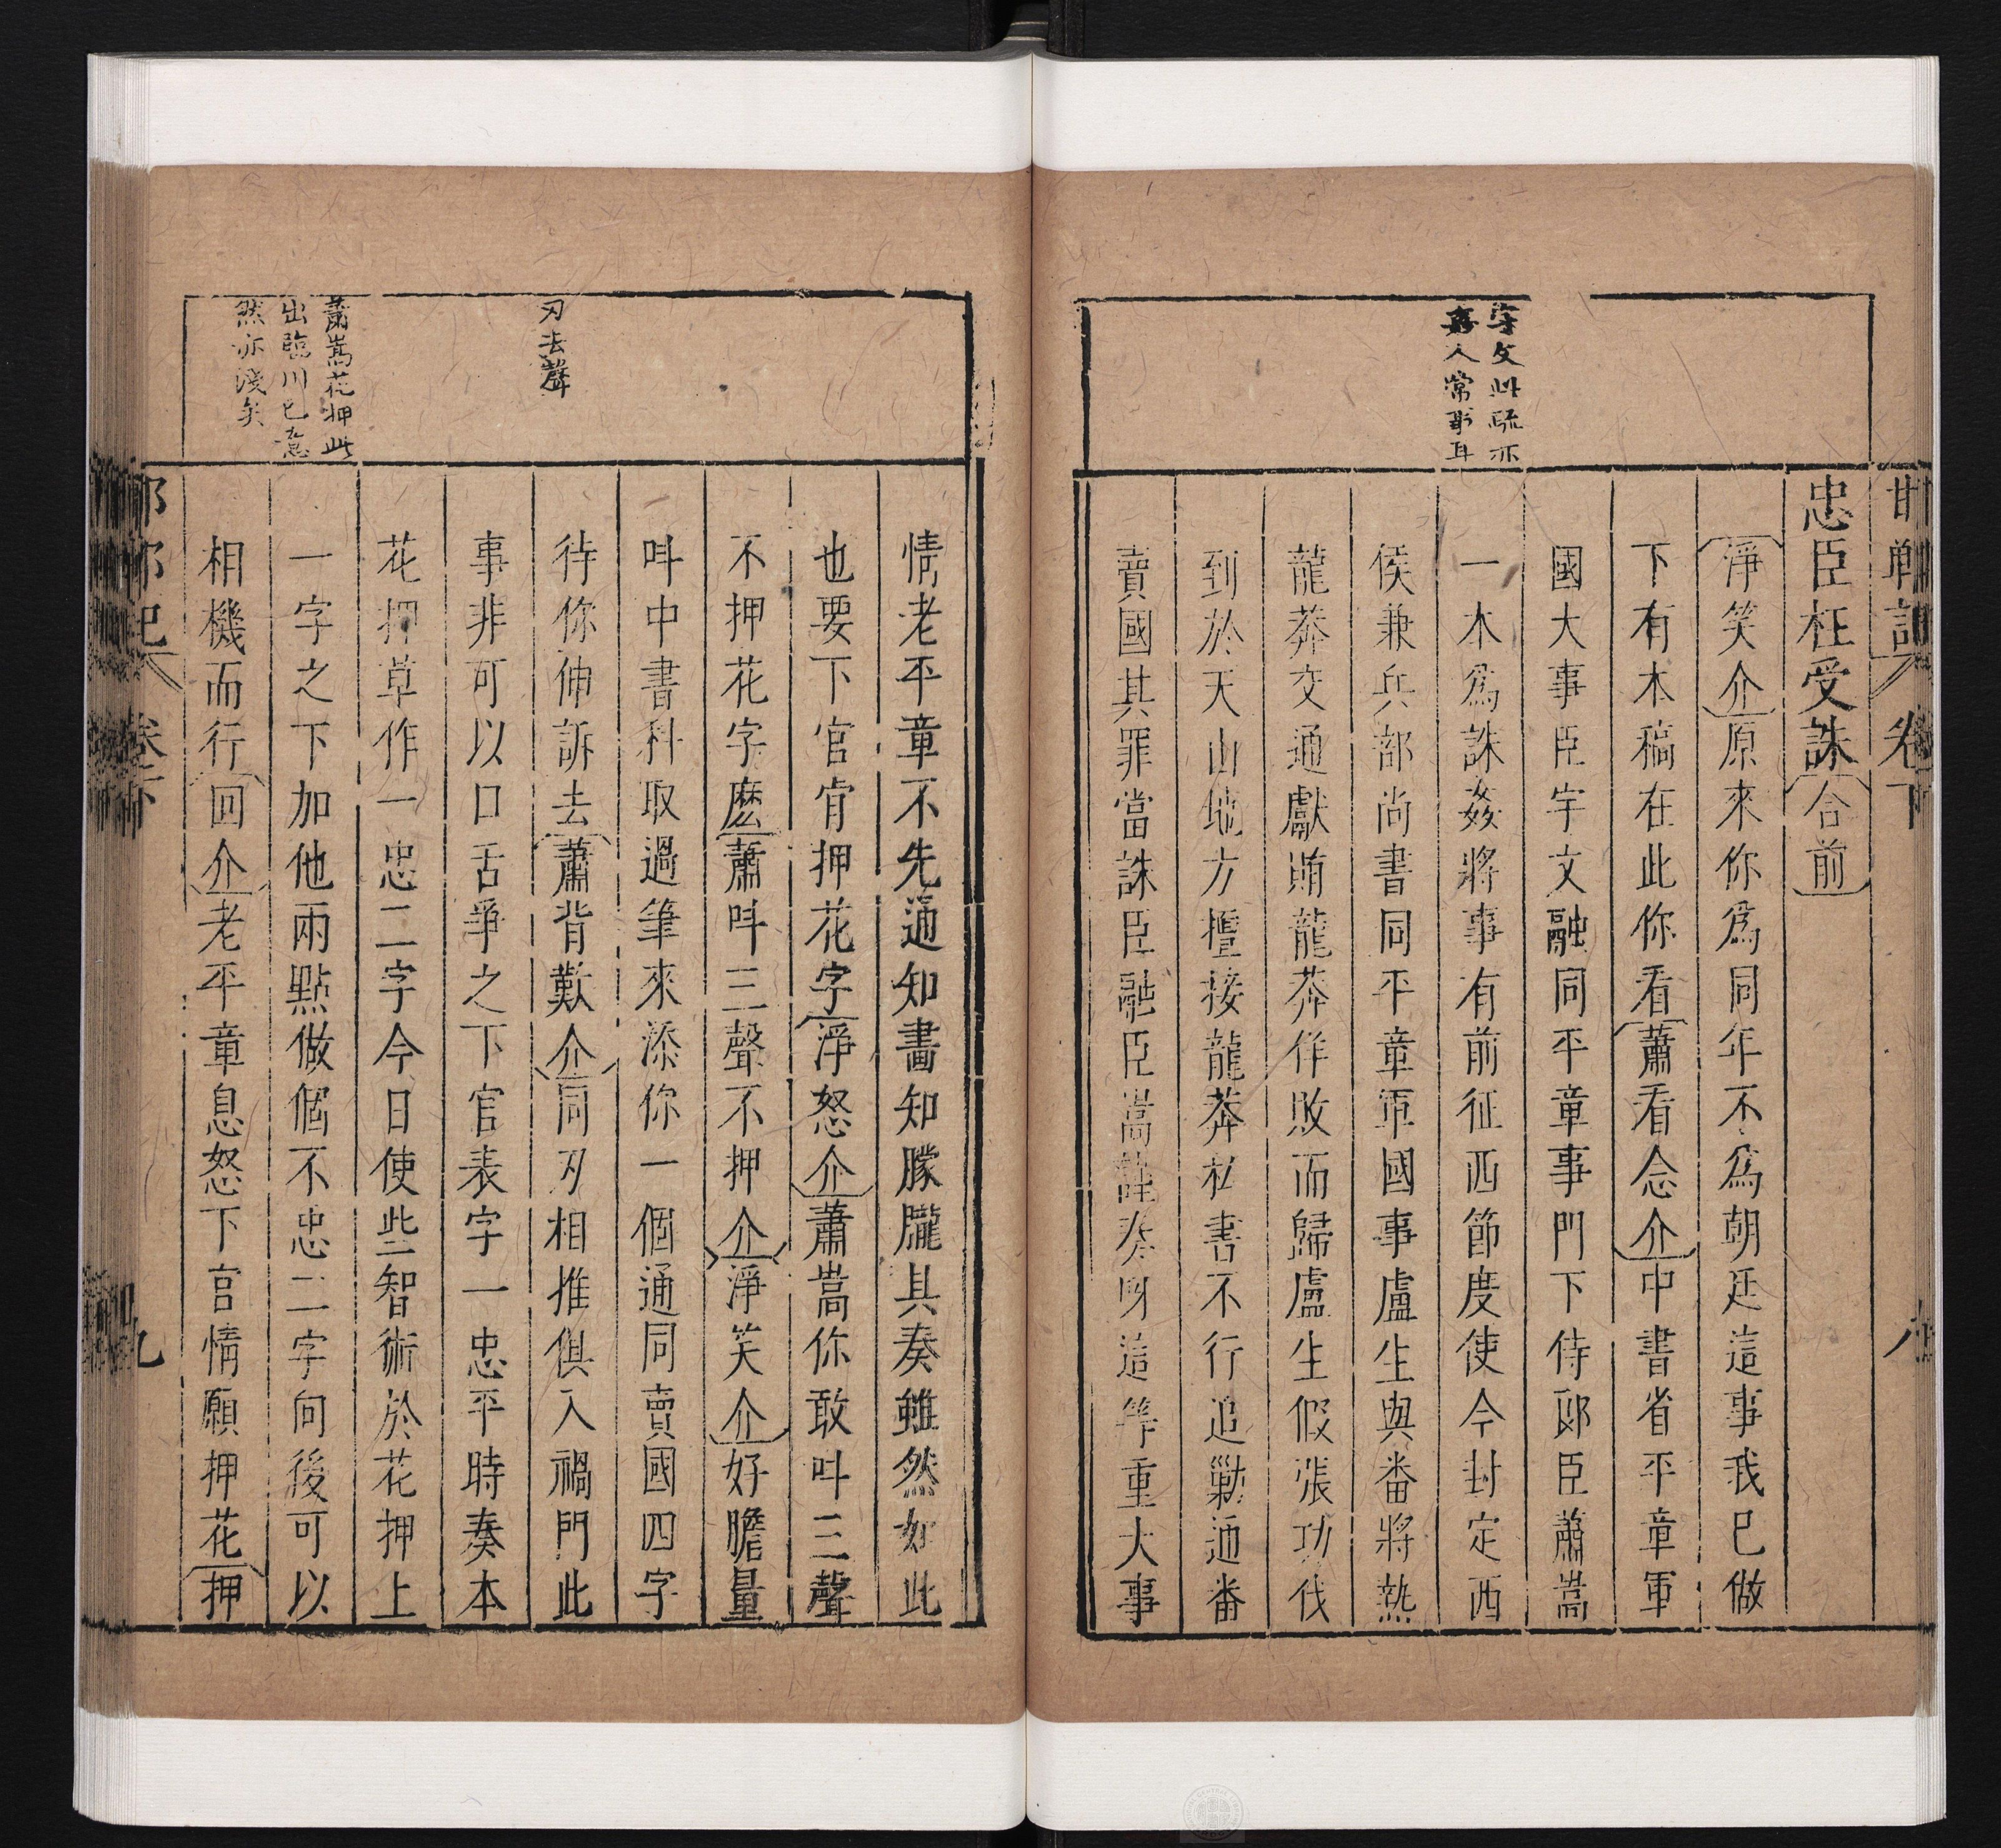 邯鄲記
卷下
八
宇文此疏亦
真人常事耳
忠臣枉受誅合前
淨笑介原來你爲同年不爲朝廷這事我已做
下有本稿在此你看蕭看念介中書省平章軍
國大事臣宇文融同平章事門下侍郎臣蕭嵩
一本爲誅姦將事有前征西節度使今封定西
侯兼兵部尚書同平章軍國事盧生與番將熱
龍莽交通獻賄龍莽佯敗而歸盧生假張功伐
到於天山地方擅接龍莽私書不行追勦通番
賣國其罪當誅臣融臣嵩謹奏呀這等重大事
刃去聲
蕭嵩花押此
出臨川已意
然亦淺矣
情老平章不先通知畵知朦朧具奏雖然如此
也要下官肯押花字淨怒介蕭嵩你敢叫三聲
不押花字麽蕭叫三聲不押介淨笑介好膽量
叫中書科取過筆來添你一個通同賣國四字
待你伸訴去蕭背歎介同刃相推俱入禍門此
事非可以口舌爭之下官表字一忠平時奏本
花押草作一忠二字今日使些智術於花押上
一字之下加他兩點做個不忠二字向後可以
相機而行回介老平章息怒下官情願押花押
邯鄲記
卷下
九